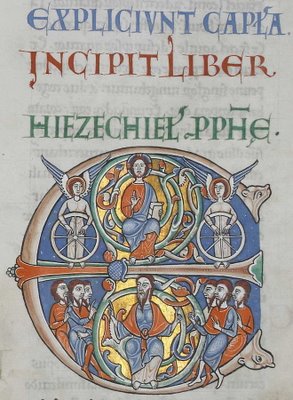 EXPLICIUNT CAPLA.
INCIPIT LIBER
HIEZECHIEL PPHE.